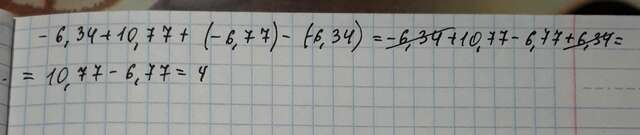 - 6,34 + 10,77 + (-6,77) - (-6,34) = -6,34 + 10,77 - 6,77 + 6,34 =
= 10,77 - 6,77 = 4